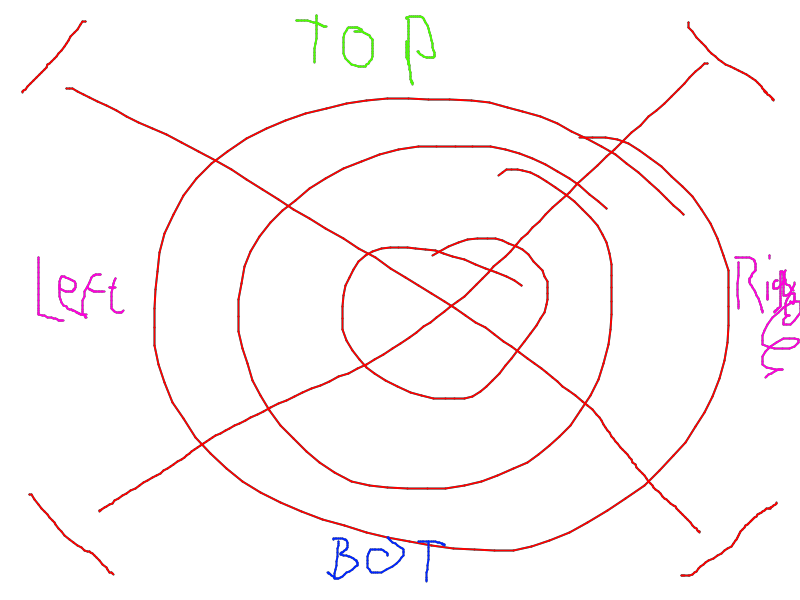 TOP
Left
Right
BOT